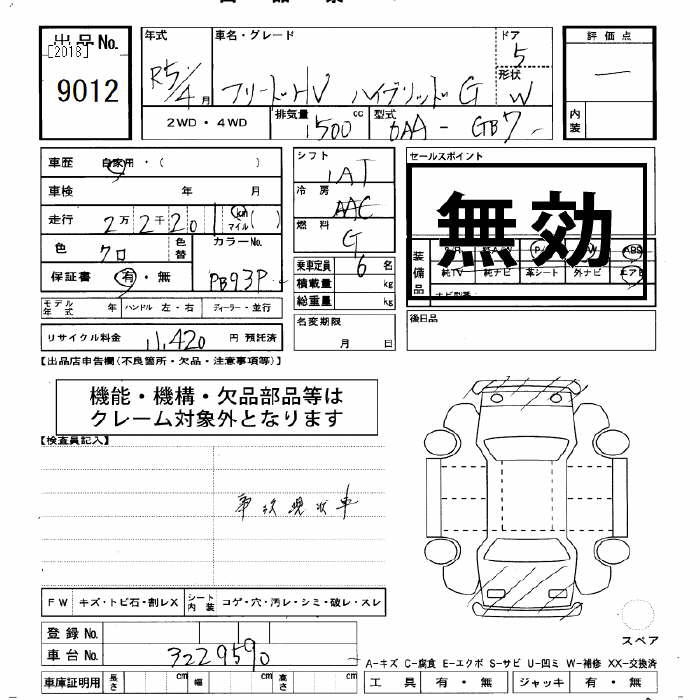 出品No.
[2018]
9012
年式
R5/4月
車名・グレード
フリードHV ハイブリッドG
ドア
5
形状
W
評価点
―
内装
2WD・4WD
排気量 1500 cc
型式 6AA - GB7
車歴 自家用・( )
車検 年 月
走行 2万2千201 km マイル ( )
色 クロ
色替
カラーNo.
PB93P
保証書 有・無
モデル年式 年 ハンドル 左・右 ディーラー・並行
リサイクル料金 11,420 円 預託済
シフト
IAT
冷房
AAC
燃料
G
乗車定員 6 名
積載量 kg
総重量 kg
名変期限
月 日
セールスポイント
無効
装備品
ABS
純TV 純ナビ 革シート 外ナビ エアB
後日品
【出品店申告欄(不良箇所・欠品・注意事項等)】
機能・機構・欠品部品等は
クレーム対象外となります
【検査員記入】
事故現状車
FW キズ・トビ石・割レX シート内装 コゲ・穴・汚レ・シミ・破レ・スレ
登録No.
車台No. 3229590
車庫証明用 長さ cm 幅 cm 高さ cm
スペア
A-キズ C-腐食 E-エクボ S-サビ U-凹ミ W-補修 XX-交換済
工具 有・無 ジャッキ 有・無